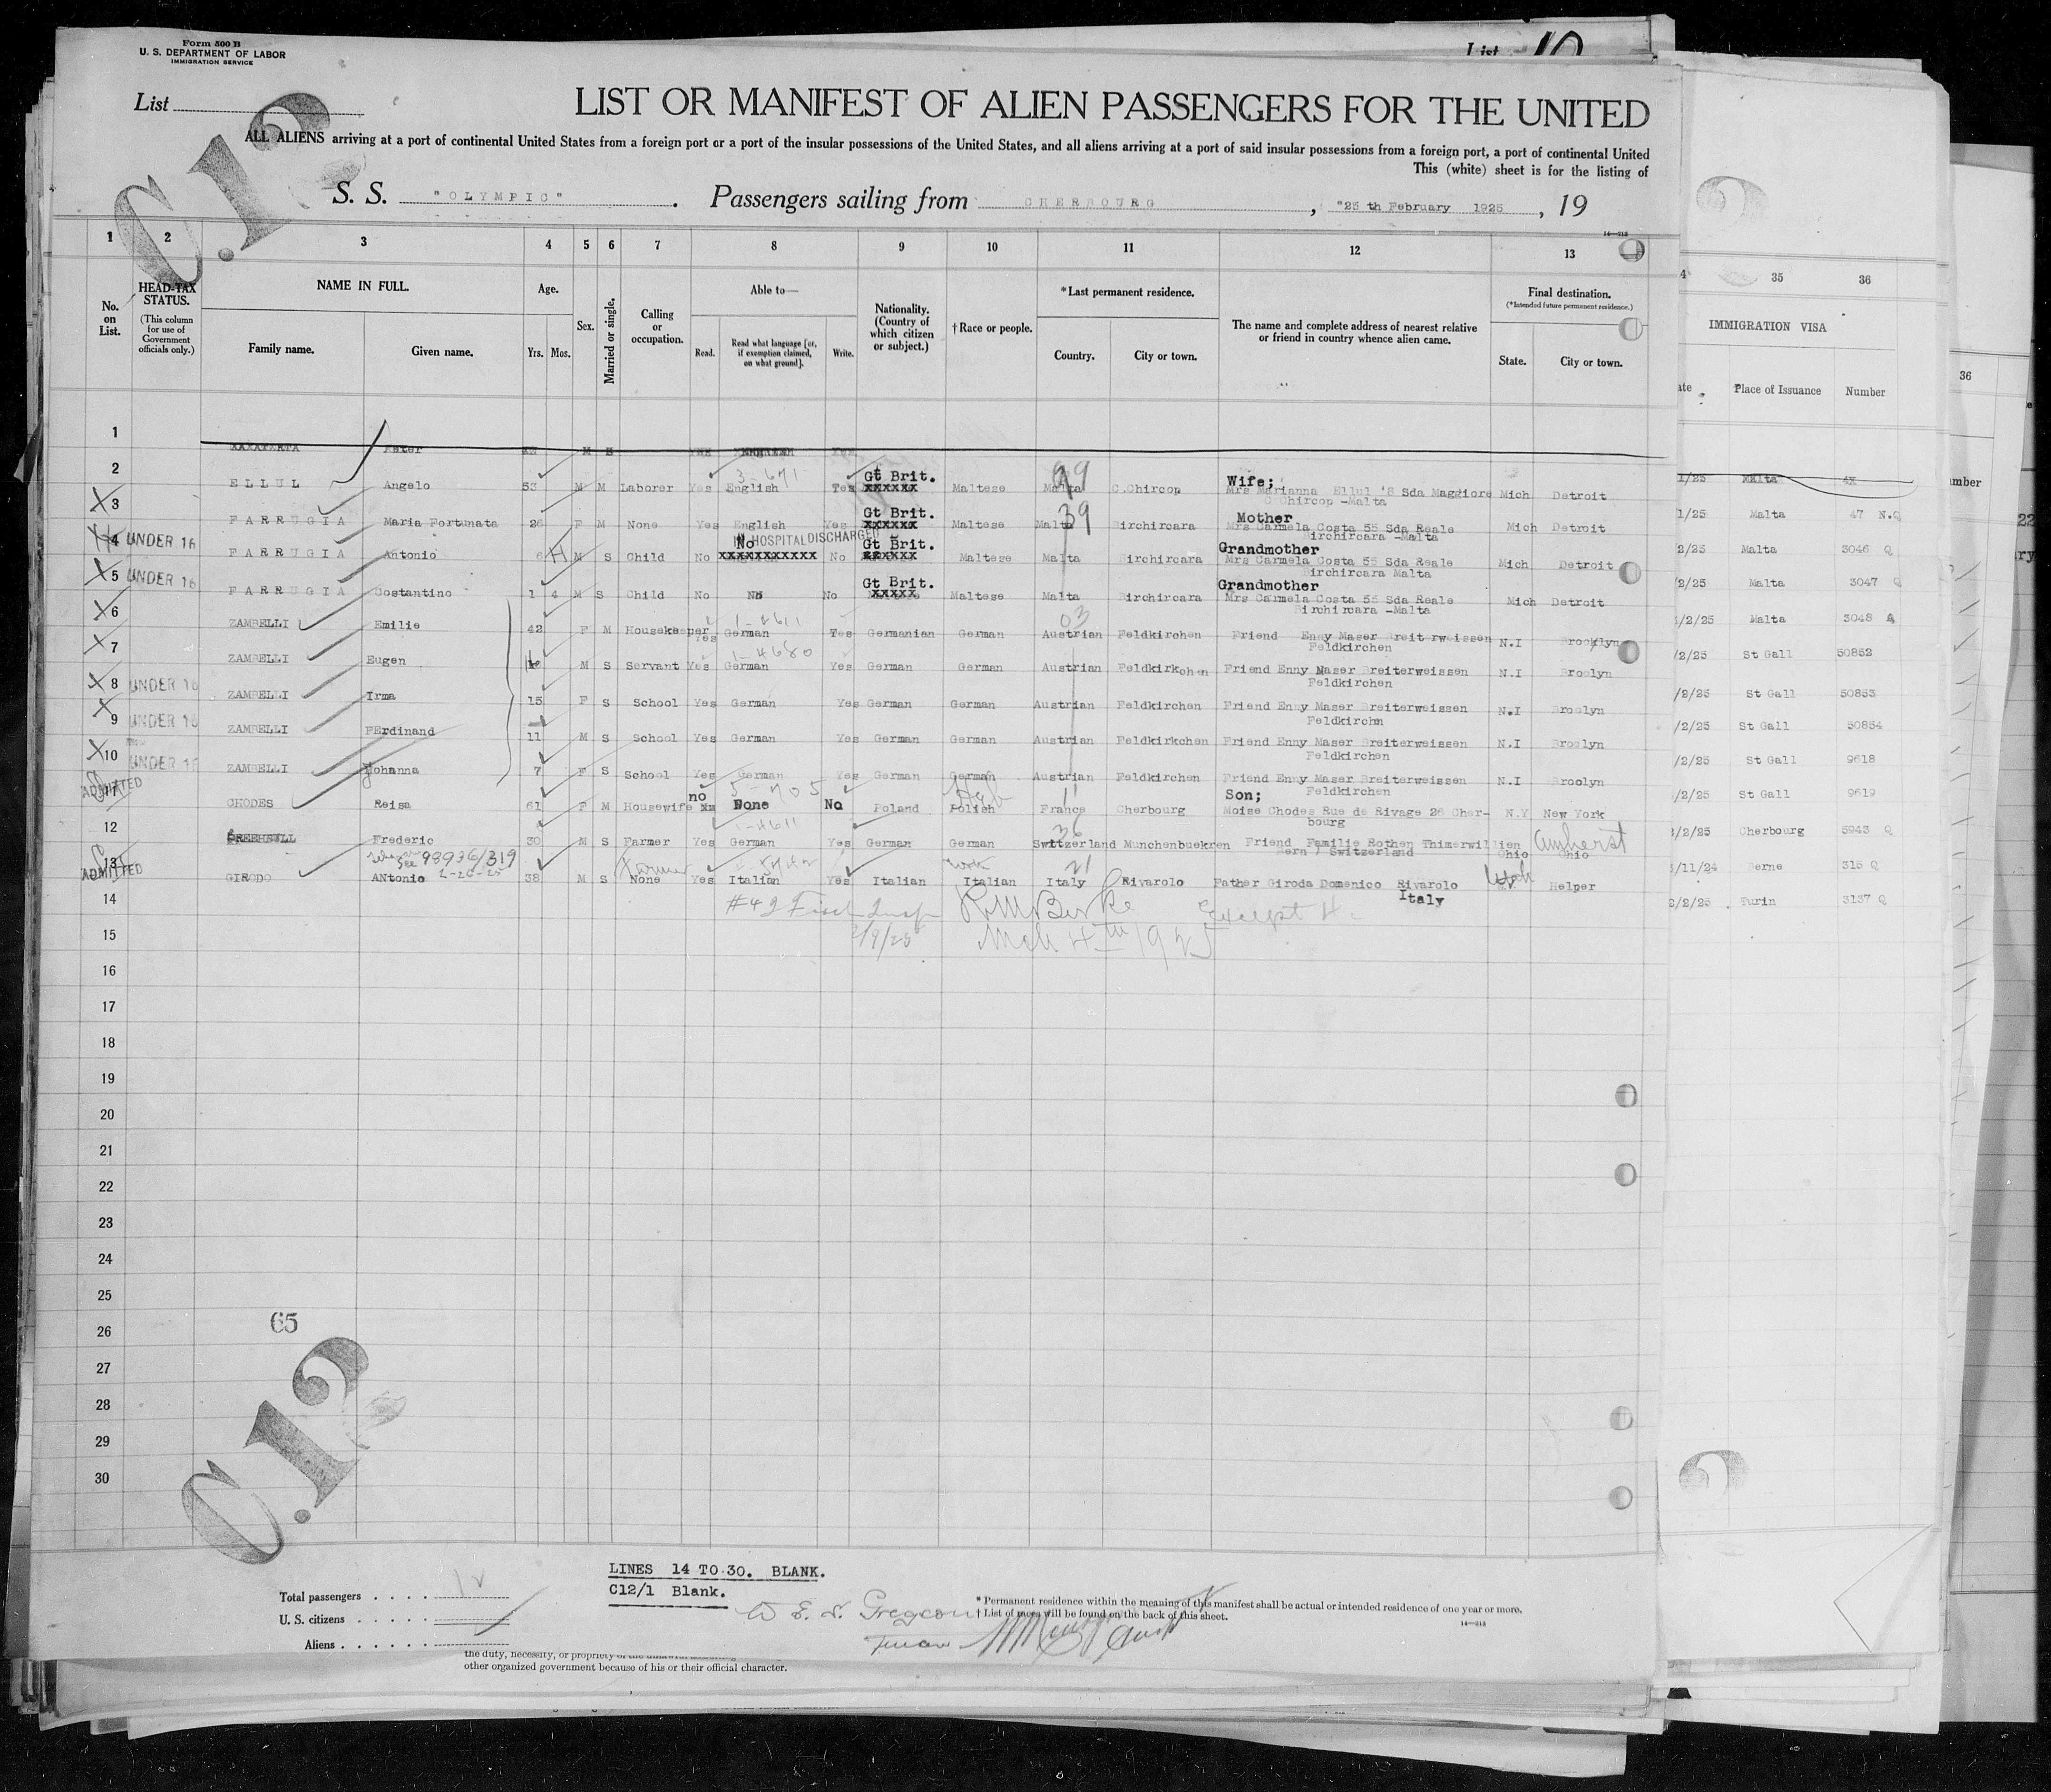 Form 500 B
U. S. DEPARTMENT OF LABOR
IMMIGRATION SERVICE
List
List 10
LIST OR MANIFEST OF ALIEN PASSENGERS FOR THE UNITED
ALL ALIENS arriving at a port of continental United States from a foreign port or a port of the insular possessions of the United States, and all aliens arriving at a port of said insular possessions from a foreign port, a port of continental United
This (white) sheet is for the listing of
C.12
S. S. "OLYMPIC" . Passengers sailing from CHERBOURG , "25 th February 1925 , 19
14—213
1 2 3 4 5 6 7 8 9 10 11 12 13 35 36
No. on List.
HEAD-TAX STATUS.
(This column for use of Government officials only.)
NAME IN FULL.
Family name. Given name.
Age.
Yrs. Mos.
Sex.
Married or single.
Calling or occupation.
Able to—
Read. Read what language [or, if exemption claimed, on what ground]. Write.
Nationality. (Country of which citizen or subject.)
† Race or people.
* Last permanent residence.
Country. City or town.
The name and complete address of nearest relative or friend in country whence alien came.
Final destination.
(*Intended future permanent residence.)
State. City or town.
IMMIGRATION VISA
Place of Issuance Number
36
1
Malta
2 ELLUL Angelo 53 M M Laborer Yes English Yes Gt Brit. xxxxxx Maltese Malta C.Chircop Wife; Mrs Marianna Ellul '8 Sda Maggiore Mich Detroit 1/25 Malta 47 N.Q
Chircop -Malta
3 FARRUGIA Maria Fortunata 26 F M None Yes English Yes Gt Brit. xxxxxx Maltese Malta 39 Birchircara Mother Mrs Carmela Costa 55 Sda Reale Mich Detroit 2/25 Malta 3046 Q
Birchircara -Malta
IN HOSPITAL DISCHARGED
4 UNDER 16 FARRUGIA Antonio 6 M S Child No No xxxxxxxxxxx No Gt Brit. Maltese Malta Birchircara Grandmother Mrs Carmela Costa 55 Sda Reale Mich Detroit /2/25 Malta 3047 Q
Birchircara Malta
5 UNDER 16 FARRUGIA Costantino 1 4 M S Child No No No Gt Brit. xxxxx Maltese Malta Birchircara Grandmother Mrs Carmela Costa 55 Sda Reale Mich Detroit /2/25 Malta 3048
Birchircara -Malta
6 ZAMBELLI Emilie 42 F M Housekeeper Yes German Yes Germanian German Austrian Feldkirchen Friend Enny Maser Breiterweissen N.I Brooklyn /2/25 St Gall 50852
Feldkirchen
7 ZAMBELLI Eugen 16 M S Servant Yes German Yes German German Austrian Feldkirkchen Friend Enny Maser Breiterweissen N.I Broolyn /2/25 St Gall 50853
Feldkirchen
8 UNDER 16 ZAMBELLI Irma 15 F S School Yes German Yes German German Austrian Feldkirchen Friend Enny Maser Breiterweissen N.I Broolyn /2/25 St Gall 50854
Feldkirchn
9 UNDER 16 ZAMBELLI FErdinand 11 M S School Yes German Yes German German Austrian Feldkirkchen Friend Enny Maser Breiterweissen N.I Broolyn /2/25 St Gall 9618
Feldkirchen
10 UNDER 16 ZAMBELLI Johanna 7 F S School Yes German Yes German German Austrian Feldkirchen Friend Enny Maser Breiterweissen N.I Broolyn /2/25 St Gall 9619
Feldkirchen
11 ADMITTED CHODES Reisa 61 F M Housewife no None No Poland Polish France Cherbourg Son; Moise Chodes Rue de Rivage 26 Cher- N.Y New York /2/25 Cherbourg 5943 Q
bourg
12 Frederic 30 M S Farmer Yes German Yes German German Switzerland Munchenbuekren Friend Familie Rothen Thimerwillien Ohio Ohio Amherst /11/24 Berne 315 Q
Bern / Switzerland
98936/319
2-26-25
13 ADMITTED GIRODO ANtonio 38 M S None Farmer Yes Italian Yes Italian Italian Italy Rivarolo Father Giroda Domenico Rivarolo Utah Helper 2/2/25 Turin 3137 Q
Italy
14
R.M.Burke Except 4
15
March 4th 1925
16
17
18
19
20
21
22
23
24
25
65
26
27
28
29
30
C.12
LINES 14 TO 30. BLANK.
C12/1 Blank.
Total passengers
U. S. citizens
Aliens
* Permanent residence within the meaning of this manifest shall be actual or intended residence of one year or more.
† List of races will be found on the back of this sheet.
14—213
the duty, necessity, or propriety of the
other organized government because of his or their official character.